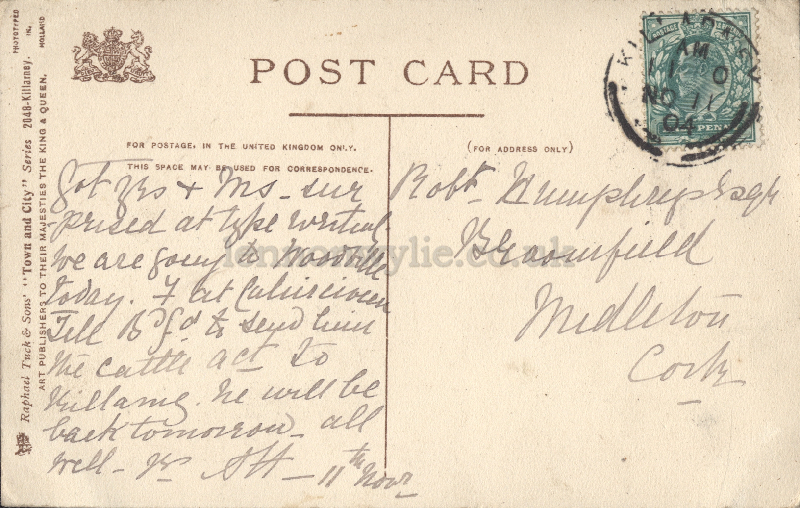 PHOTOTYPED
IN
HOLLAND.
Raphael Tuck & Sons' "Town and City" Series 2048-Killarney.
ART PUBLISHERS TO THEIR MAJESTIES THE KING & QUEEN.
POST CARD
FOR POSTAGE, IN THE UNITED KINGDOM ONLY.
THIS SPACE MAY BE USED FOR CORRESPONDENCE.
(FOR ADDRESS ONLY)
KILLARNEY
AM
NO 11
04
Got yrs & Ms - sur
prised at type
We are going to
today. F at
Tell to send him
the cattle act to
Killarney he will be
back tomorrow - all
well - yrs - 11th Novr
Robt Humphreys Esqr
Broomfield
Midleton
Cork
lennoxwylie.co.uk